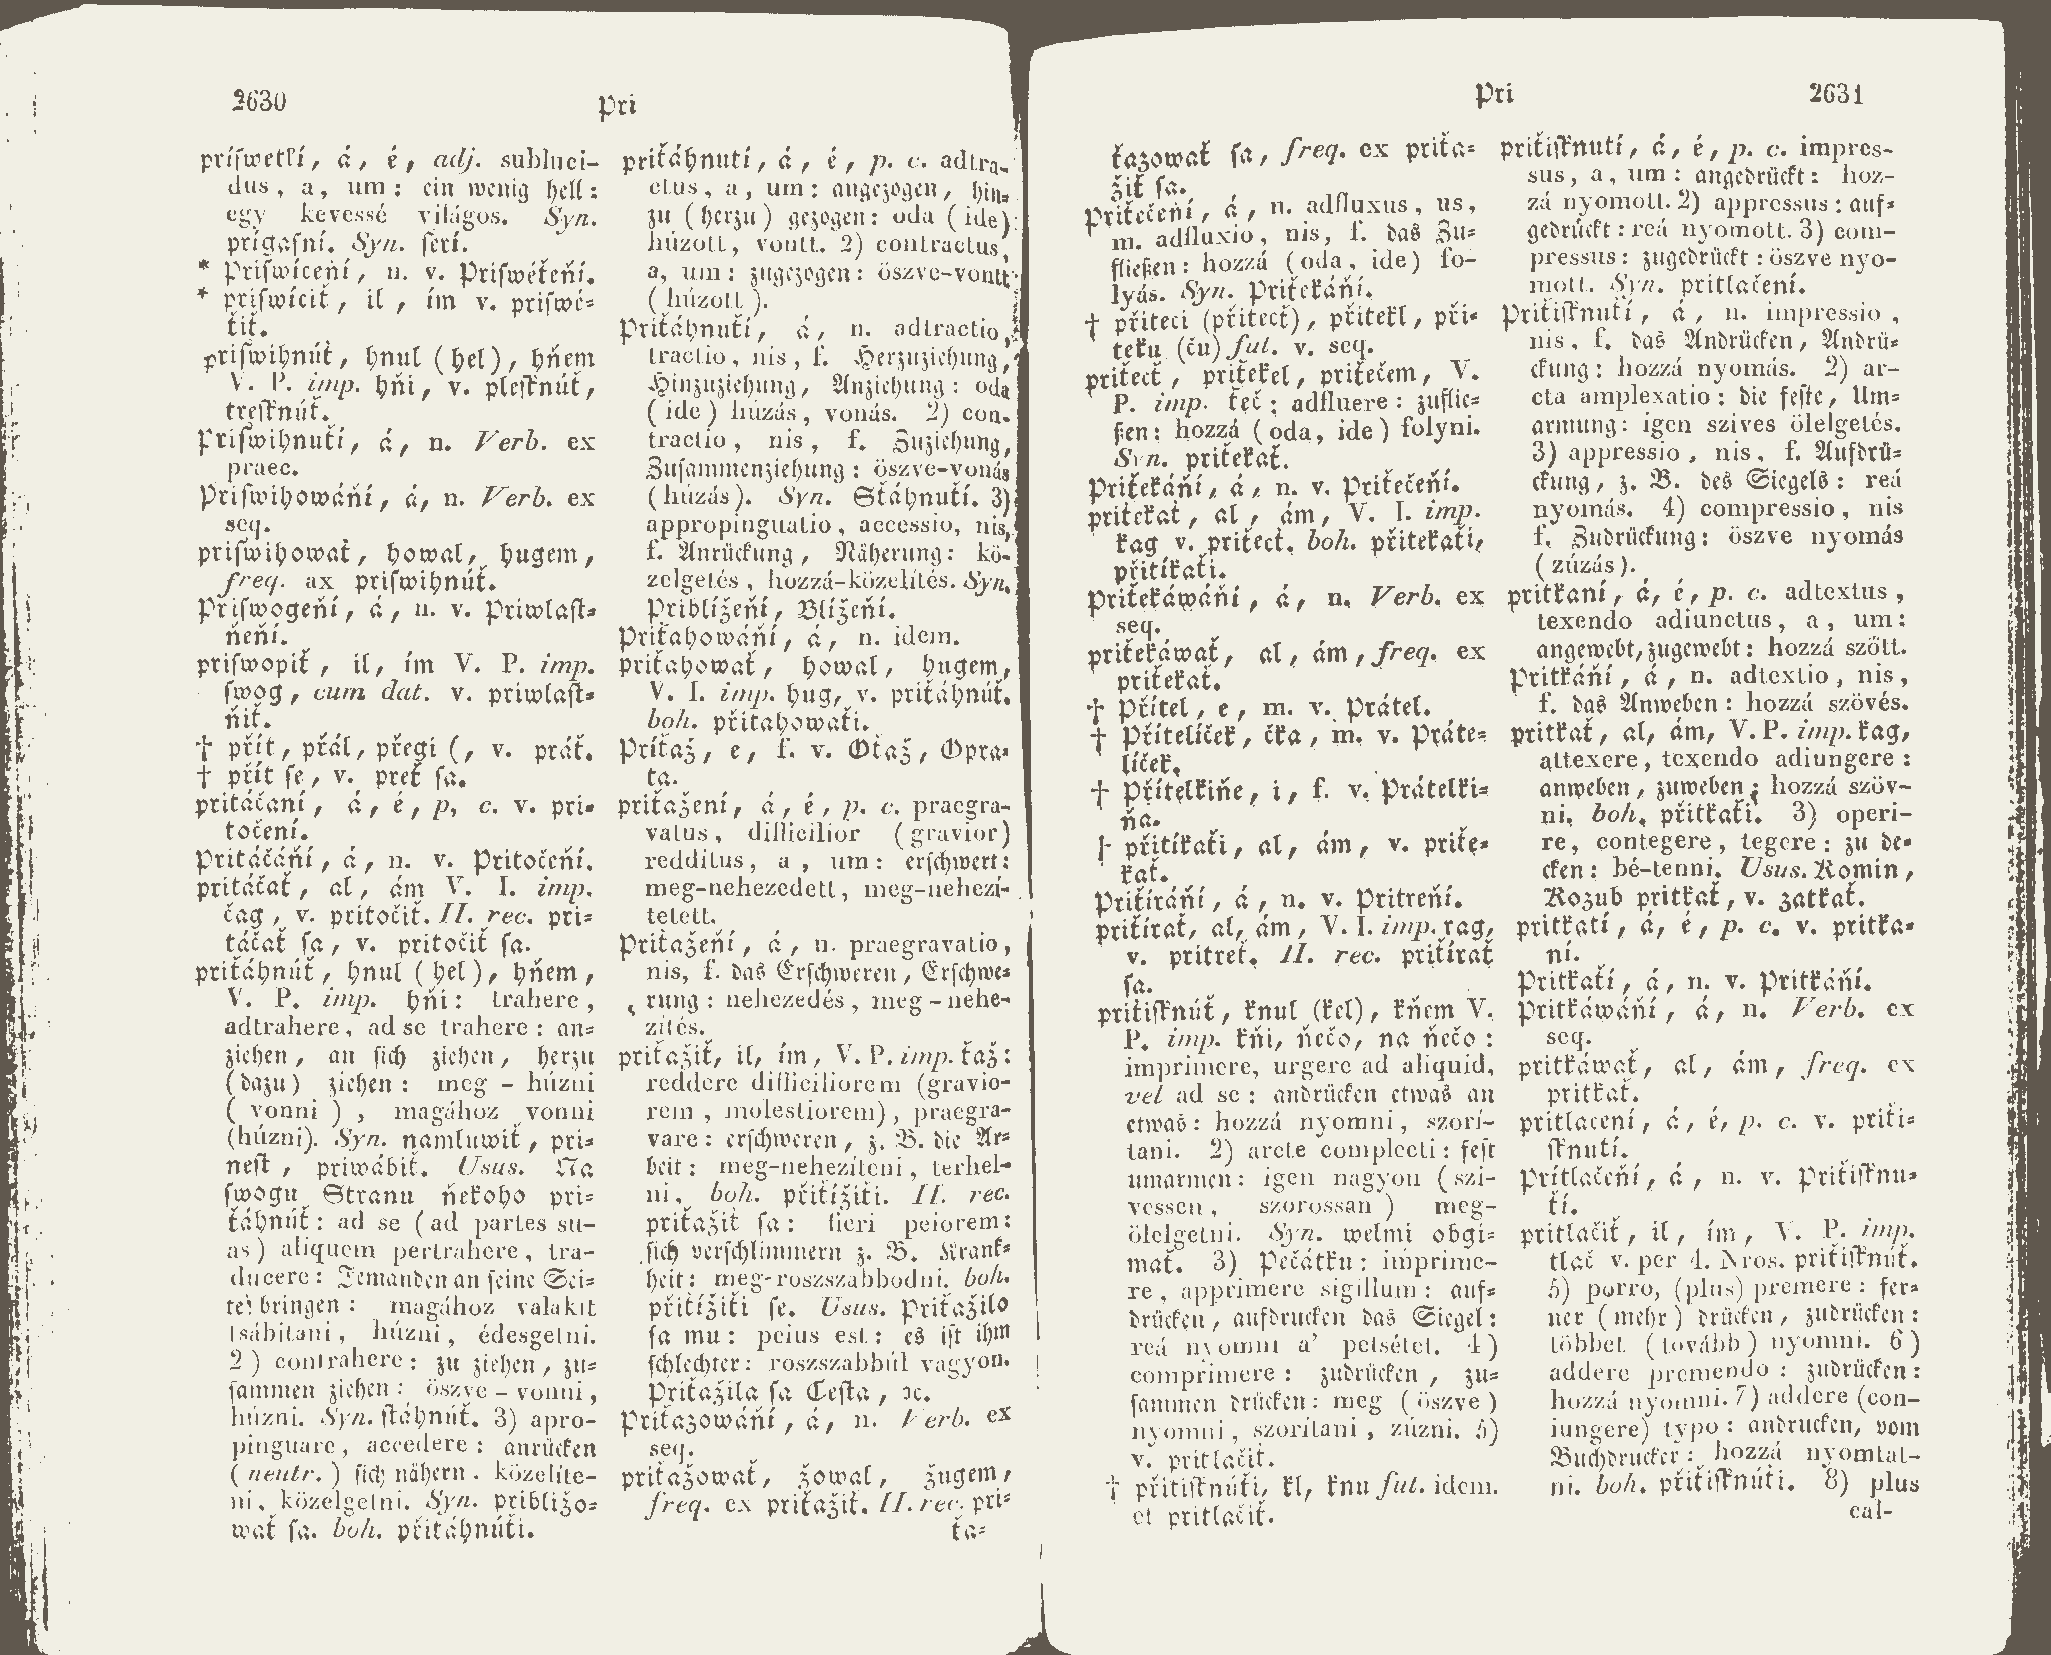 2630
Pri
príſwetkí, á, é, adj. subluci-
dus, a, um: ein wenig hell:
egy kevessé világos. Syn.
prígaſní. Syn. ſerí.
* Priſwíceňí, n. v. Priſwéťeňí.
* priſwíciť, il, ím v. priſwé-
ťiť.
priſwihnúť, hnul (hel), hňem
V. P. imp. hňi, v. pleſknúť,
treſknúť.
Priſwihnuťí, á, n. Verb. ex
praec.
Priſwihowáňí, á, n. Verb. ex
seq.
priſwihowať, howal, hugem,
freq. ax priſwihnúť.
Priſwogeňí, á, n. v. Priwlaſt-
ňeňí.
priſwopiť, il, ím V. P. imp.
ſwog, cum dat. v. priwlaſt-
ňiť.
† přít, přál, přegi (, v. práť.
† přít ſe, v. preť ſa.
pritáčaní, á, é, p. c. v. pri-
točení.
Pritáčáňí, á, n. v. Pritočeňí.
pritáčať, al, ám V. I. imp.
čag, v. pritočiť. II. rec. pri-
táčať ſa, v. pritočiť ſa.
priťáhnúť, hnul (hel), hňem,
V. P. imp. hňi: trahere,
adtrahere, ad se trahere: an-
ziehen, an ſich ziehen, herzu
(dazu) ziehen: meg-húzni
(vonni), magához vonni
(húzni). Syn. namluwiť, pri-
neſt, priwábiť. Usus. Na
ſwogu Stranu ňekoho pri-
ťáhnúť: ad se (ad partes su-
as) aliquem pertrahere, tra-
ducere: Jemanden an ſeine Sei-
te bringen: magához valakit
tsábítani, húzni, édesgetni.
2) contrahere: zu ziehen, zu-
ſammen ziehen: öszve-vonni,
húzni. Syn. ſťáhnúť. 3) apro-
pinguare, accedere: anrücken
(neutr.) ſich nähern. közelíte-
ni, közelgetni. Syn. približo-
wať ſa. boh. přitáhnúťi.
priťáhnutí, á, é, p. c. adtra-
ctus, a, um: angezogen, hin-
zu (herzu) gezogen: oda (ide)
húzott, vontt. 2) contractus,
a, um: zugezogen: öszve-vontt
(húzott).
Priťáhnuťí, á, n. adtractio,
tractio, nis, f. Herzuziehung,
Hinzuziehung, Anziehung: oda
(ide) húzás, vonás. 2) con-
tractio, nis, f. Zuziehung,
Zuſammenziehung: öszve-vonás
(húzás). Syn. Sťáhnuťí. 3)
appropinguatio, accessio, nis,
f. Anrückung, Näherung: kö-
zelgetés, hozzá-közelítés. Syn.
Priblížeňí, Blížeňí.
Priťahowáňí, á, n. idem.
priťahowať, howal, hugem,
V. I. imp. hug, v. priťáhnúť.
boh. přitahowaťi.
Príťaž, e, f. v. Oťaž, Opra-
ta.
priťažení, á, é, p. c. praegra-
vatus, difficilior (gravior)
redditus, a, um: erſchwert:
meg-nehezedett, meg-nehezí-
tetett.
Priťažeňí, á, n. praegravatio,
nis, f. das Erſchweren, Erſchwe-
rung: nehezedés, meg-nehe-
zítés.
priťažiť, il, ím, V. P. imp. ťaž:
reddere difficiliorem (gravio-
rem, molestiorem), praegra-
vare: erſchweren, z. B. die Ar-
beit: meg-nehezíteni, terhel-
ni, boh. přitížiťi. II. rec.
priťažiť ſa: fieri peiorem:
ſich verſchlimmern z. B. Krank-
heit: meg-roszszabbodni. boh.
přitížiťi ſe. Usus. Priťažilo
ſa mu: peius est: es iſt ihm
ſchlechter: roszszabbúl vagyon.
Priťažila ſa Ceſta, ꝛc.
Priťazowáňí, á, n. Verb. ex
seq.
priťažowať, žowal, žugem,
freq. ex priťažiť. II. rec. pri-
ťa-
Pri
2631
ťazowať ſa, freq. ex priťa-
žiť ſa.
Priťečeňí, á, n. adfluxus, us,
m. adfluxio, nis, f. das Zu-
fließen: hozzá (oda, ide) fo-
lyás. Syn. Priťekáňí.
† přiteci (přitecť), přitekl, při-
teku (ču) fut. v. seq.
priťecť, priťekel, priťečem, V.
P. imp. ťeč: adfluere: zuflie-
ßen: hozzá (oda, ide) folyni.
Syn. priťekať.
Priťekáňí, á, n. v. Priťečeňí.
priťekať, al, ám, V. I. imp.
kag v. priťecť. boh. přitekaťi,
přitíkaťi.
Priťekáwáňí, á, n. Verb. ex
seq.
priťekáwať, al, ám, freq. ex
priťekať.
† Přítel, e, m. v. Prátel.
† Přítelíček, čka, m. v. Práte-
líček.
† Přítelkiňe, i, f. v. Prátelki-
ňa.
† přitíkaťi, al, ám, v. priťe-
kať.
Priťíráňí, á, n. v. Pritreňí.
priťírať, al, ám, V. I. imp. rag,
v. pritreť. II. rec. priťírať
ſa.
priťiſknúť, knul (kel), kňem V.
P. imp. kňi, ňečo, na ňečo:
imprimere, urgere ad aliquid,
vel ad se: andrücken etwas an
etwas: hozzá nyomni, szorí-
tani. 2) arcte complecti: feſt
umarmen: igen nagyon (szí-
vessen, szorossan) meg-
ölelgetni. Syn. welmi obgí-
mať. 3) Pečátku: imprime-
re, apprimere sigillum: auf-
drücken, aufdrucken das Siegel:
reá nyomni a' petsétet. 4)
comprimere: zudrücken, zu-
ſammen drücken: meg (öszve)
nyomni, szorítani, zúzni. 5)
v. pritlačiť.
† přitiſknúťi, kl, knu fut. idem.
et pritlačiť.
priťiſknutí, á, é, p. c. impres-
sus, a, um: angedrückt: hoz-
zá nyomott. 2) appressus: auf-
gedrückt: reá nyomott. 3) com-
pressus: zugedrückt: öszve nyo-
mott. Syn. pritlačení.
Priťiſknuťí, á, n. impressio,
nis, f. das Andrücken, Andrü-
ckung: hozzá nyomás. 2) ar-
cta amplexatio: die feſte, Um-
armung: igen szives ölelgetés.
3) appressio, nis, f. Aufdrü-
ckung, z. B. des Siegels: reá
nyomás. 4) compressio, nis
f. Zudrückung: öszve nyomás
(zúzás).
pritkaní, á, é, p. c. adtextus,
texendo adiunctus, a, um:
angewebt, zugewebt: hozzá szött.
Pritkáňí, á, n. adtextio, nis,
f. das Anweben: hozzá szövés.
pritkať, al, ám, V. P. imp. kag,
attexere, texendo adiungere:
anweben, zuweben; hozzá szöv-
ni. boh. přitkaťi. 3) operi-
re, contegere, tegere: zu de-
cken: bé-tenni. Usus. Komin,
Kozub pritkať, v. zatkať.
pritkatí, á, é, p. c. v. pritka-
ní.
Pritkaťí, á, n. v. Pritkáňí.
Pritkáwáňí, á, n. Verb. ex
seq.
pritkáwať, al, ám, freq. ex
pritkať.
pritlacení, á, é, p. c. v. priťi-
ſknutí.
Prítlačeňí, á, n. v. Priťiſknu-
ťí.
pritlačiť, il, ím, V. P. imp.
tlač v. per 4. Nros. priťiſknúť.
5) porro, (plus) premere: fer-
ner (mehr) drücken, zudrücken:
többet (tovább) nyomni. 6)
addere premendo: zudrücken:
hozzá nyomni. 7) addere (con-
iungere) typo: andrucken, vom
Buchdrucker: hozzá nyomtat-
ni. boh. přitiſknúťi. 8) plus
cal-